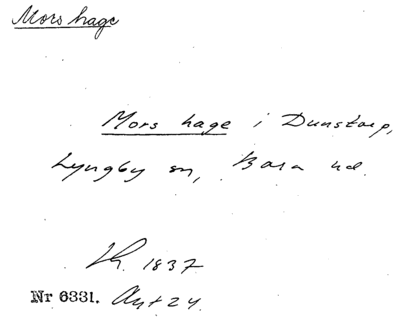 Mors hage
Mors hage i Dunstorp,
Lyngby sn, Bara hd.
Lh. 1837
Nr 6331. Avt 24.